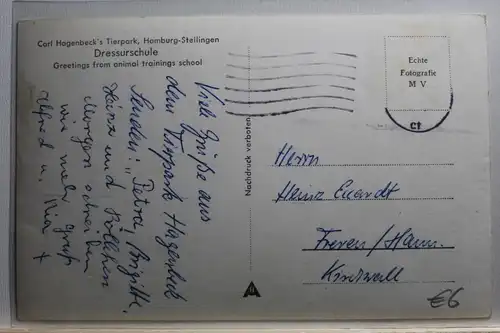 Carl Hagenbeck's Tierpark, Hamburg-Stellingen
Dressurschule
Greetings from animal trainings school
Viele Grüße aus
dem Tierpark Hagenbeck
senden: "Petra, Brigitte,
Heinz und
Morgen schreiben
wir mehr Gruß
Alfred u.
Nachdruck verboten
Echte
Fotografie
M V
ct
Herrn
Heinz Evardt
Freren/Hann.
Kirchwall
€6